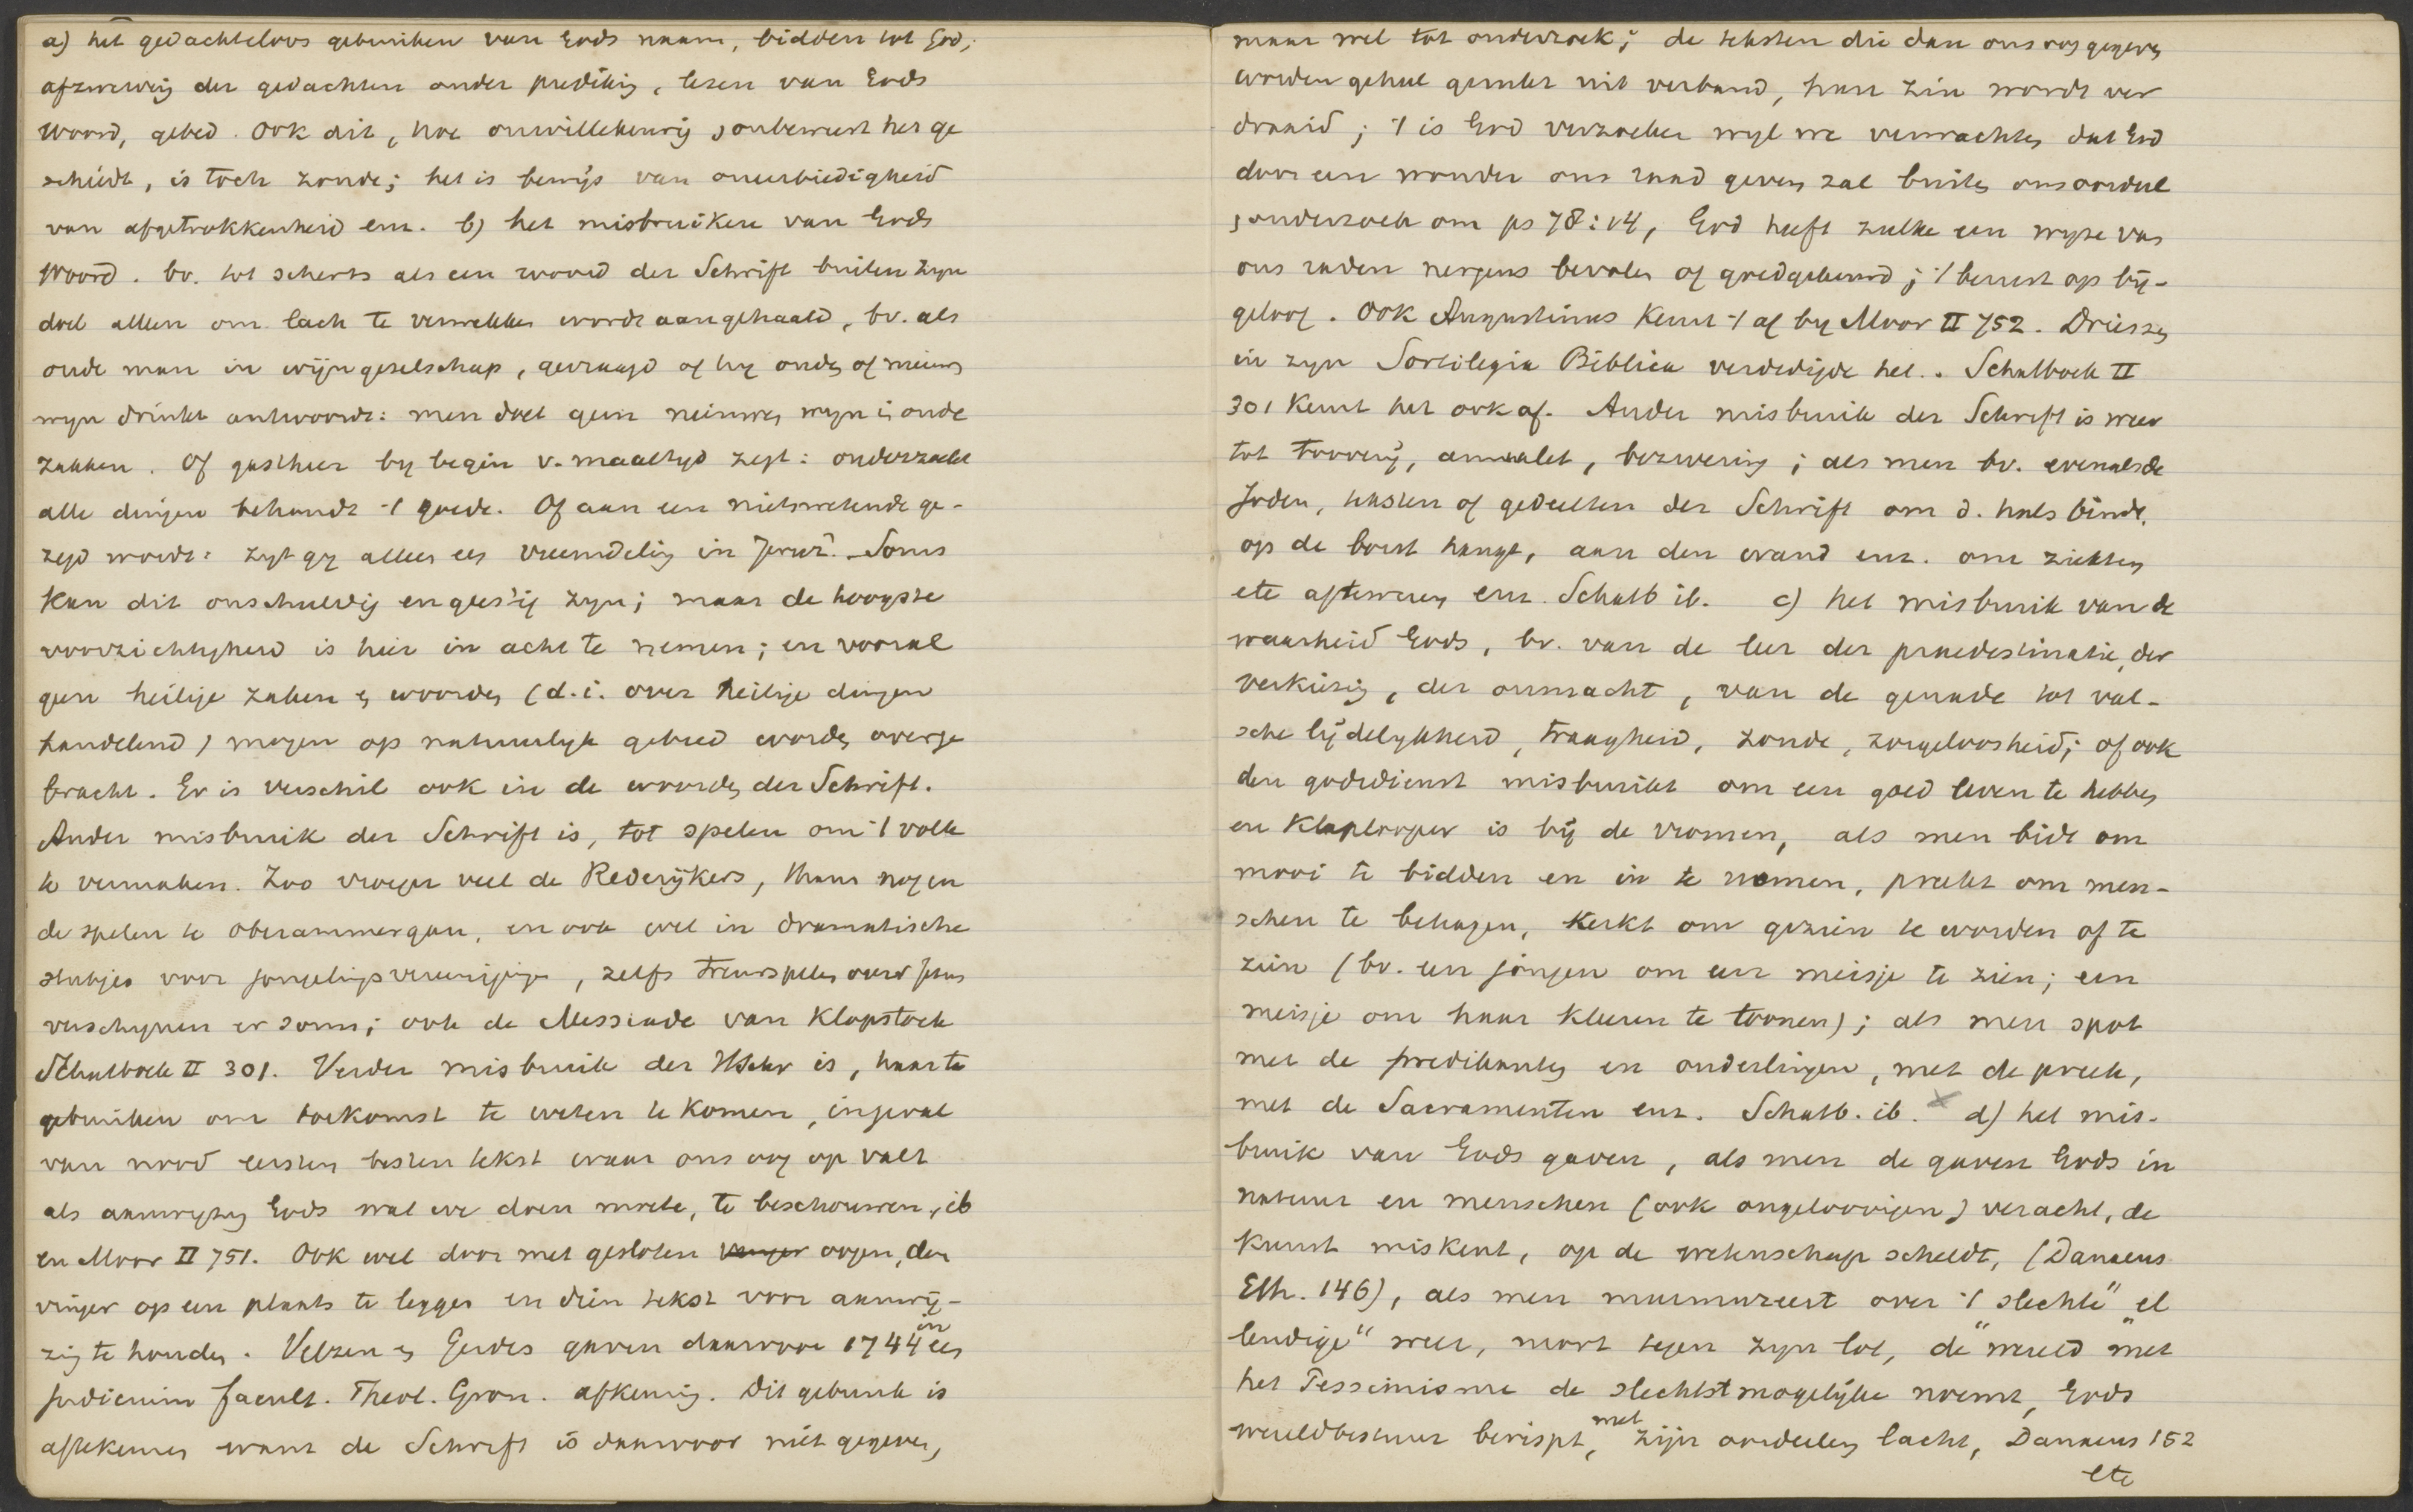 a) het gedachteloos gebruiken van Gods naam, bidden tot God,
afzwerving der gedachten onder prediking, lezen van Gods
Woord, gebed. Ook dit, hoe onwillekeurig, onbewust het ge
schiedt, is toch zonde; het is bewijs van oneerbiedigheid
van afgetrokkenheid enz. b) het misbruiken van Gods
Woord. bv. tot scherts als een woord der Schrift buiten zijn
doel alleen om lach te verwekken wordt aangehaald, bv. als
oude man in wijngezelschap, gevraagd of hy ouden of nieuwen
wyn drinkt antwoordt: men doet geen nieuwen wyn in oude
zakken. Of gastheer by begin v. maaltyd zegt: onderzoekt
alle dingen behoudt 't goede. Of aan een nietswetende ge-
zegd wordt: zyt gy alleen een vreemdeling in Jeruz? Soms
kan dit onschuldig en geestig zyn; maar de hoogste
voorzichtigheid is hier in acht te nemen; en vooral
geen heilige zaken en woorden (d.i. over heilige dingen
handelend) mogen op natuurlyk gebied worden overge
bracht. Er is verschil ook in de woorden der Schrift.
Ander misbruik der Schrift is, tot spelen om 't volk
te vermaken. Zoo vroeger veel de Rederijkers, thans nog in
de spelen te Oberammergau, en ook wel in dramatische
stukjes voor jongelingsvereenigingen, zelfs treurspelen over Jezus
verschynen er soms; ook de Messiade van Klopstock
Schulbock II 301. Verder misbruik der HSchr is, haar te
gebruiken om toekomst te weten te komen, ingeval
van nood eersten besten tekst waar ons oog op valt
als aanwyzing Gods wat we doen moeten, te beschouwen, ib
en Moor II 751. Ook wel door met gesloten vinger oogen, den
vinger op een plaats te leggen en dien tekst voor aanwij-
zing te houden. Velzen en Gerdes gaven daarvoor in 1744 een
judicium facult. Theol. Gron. afkeurig. Dit gebruik is
aftekeuren want de Schrift is daarvoor niet gegeven,
maar wel tot onderzoek; de teksten die dan ons oog gegeven
worden geheel gerukt uit verband, haar zin wordt ver
draaid; 't is God verzoeken wyl we verwachten dat God
door een wonder ons raad geven zal buiten ons oordeel
, onderzoek om ps 78:14, God heeft zulke een wyze van
ons raden nergens bevolen of goedgekeurd; 't berust op bij-
geloof. Ook Augustinus keurt 't af by Moor II 752. Driessen
in zyn Sortilegia Biblica verdedigde het. Schulbock II
301 keurt het ook af. Ander misbruik der Schrift is weer
tot toovery, amulet, bezwering; als men bv. evenals de
Joden, teksten of gedeelten der Schrift om d. hals bindt,
op de borst hangt, aan den wand enz. om ziekten
etc afteweren enz. Schulb ib. c) het misbruik van de
waarheid Gods, bv. van de leer der praedestinatie, der
verkiezing, der onmacht, van de genade tot val-
sche lijdelykheid, traagheid, zonde, zorgeloosheid; of ook
den godsdienst misbruikt om een goed leven te hebben
en klaplooper is bij de vromen, als men bidt om
mooi te bidden en in te nemen, preekt om men-
schen te behagen, kerkt om gezien te worden of te
zien (bv. een jongen om een meisje te zien; een
meisje om haar kleeren te toonen); als men spot
met de predikanten en ouderlingen, met de preek,
met de Sacramenten enz. Schulb. ib. x d) het mis-
bruik van Gods gaven, als men de gaven Gods in
natuur en menschen (ook ongeloovigen) veracht, de
kunst miskent, op de wetenschap scheldt, (Danaeus
Eth. 146), als men murmureert over 't slechte" el
lendige" weer, mort tegen zyn lot, de "wereld" met
het Pessimisme de slechtstmogelijke noemt, Gods
wereldbestuur berispt, met zijn oordeelen lacht, Danaeus 152
etc